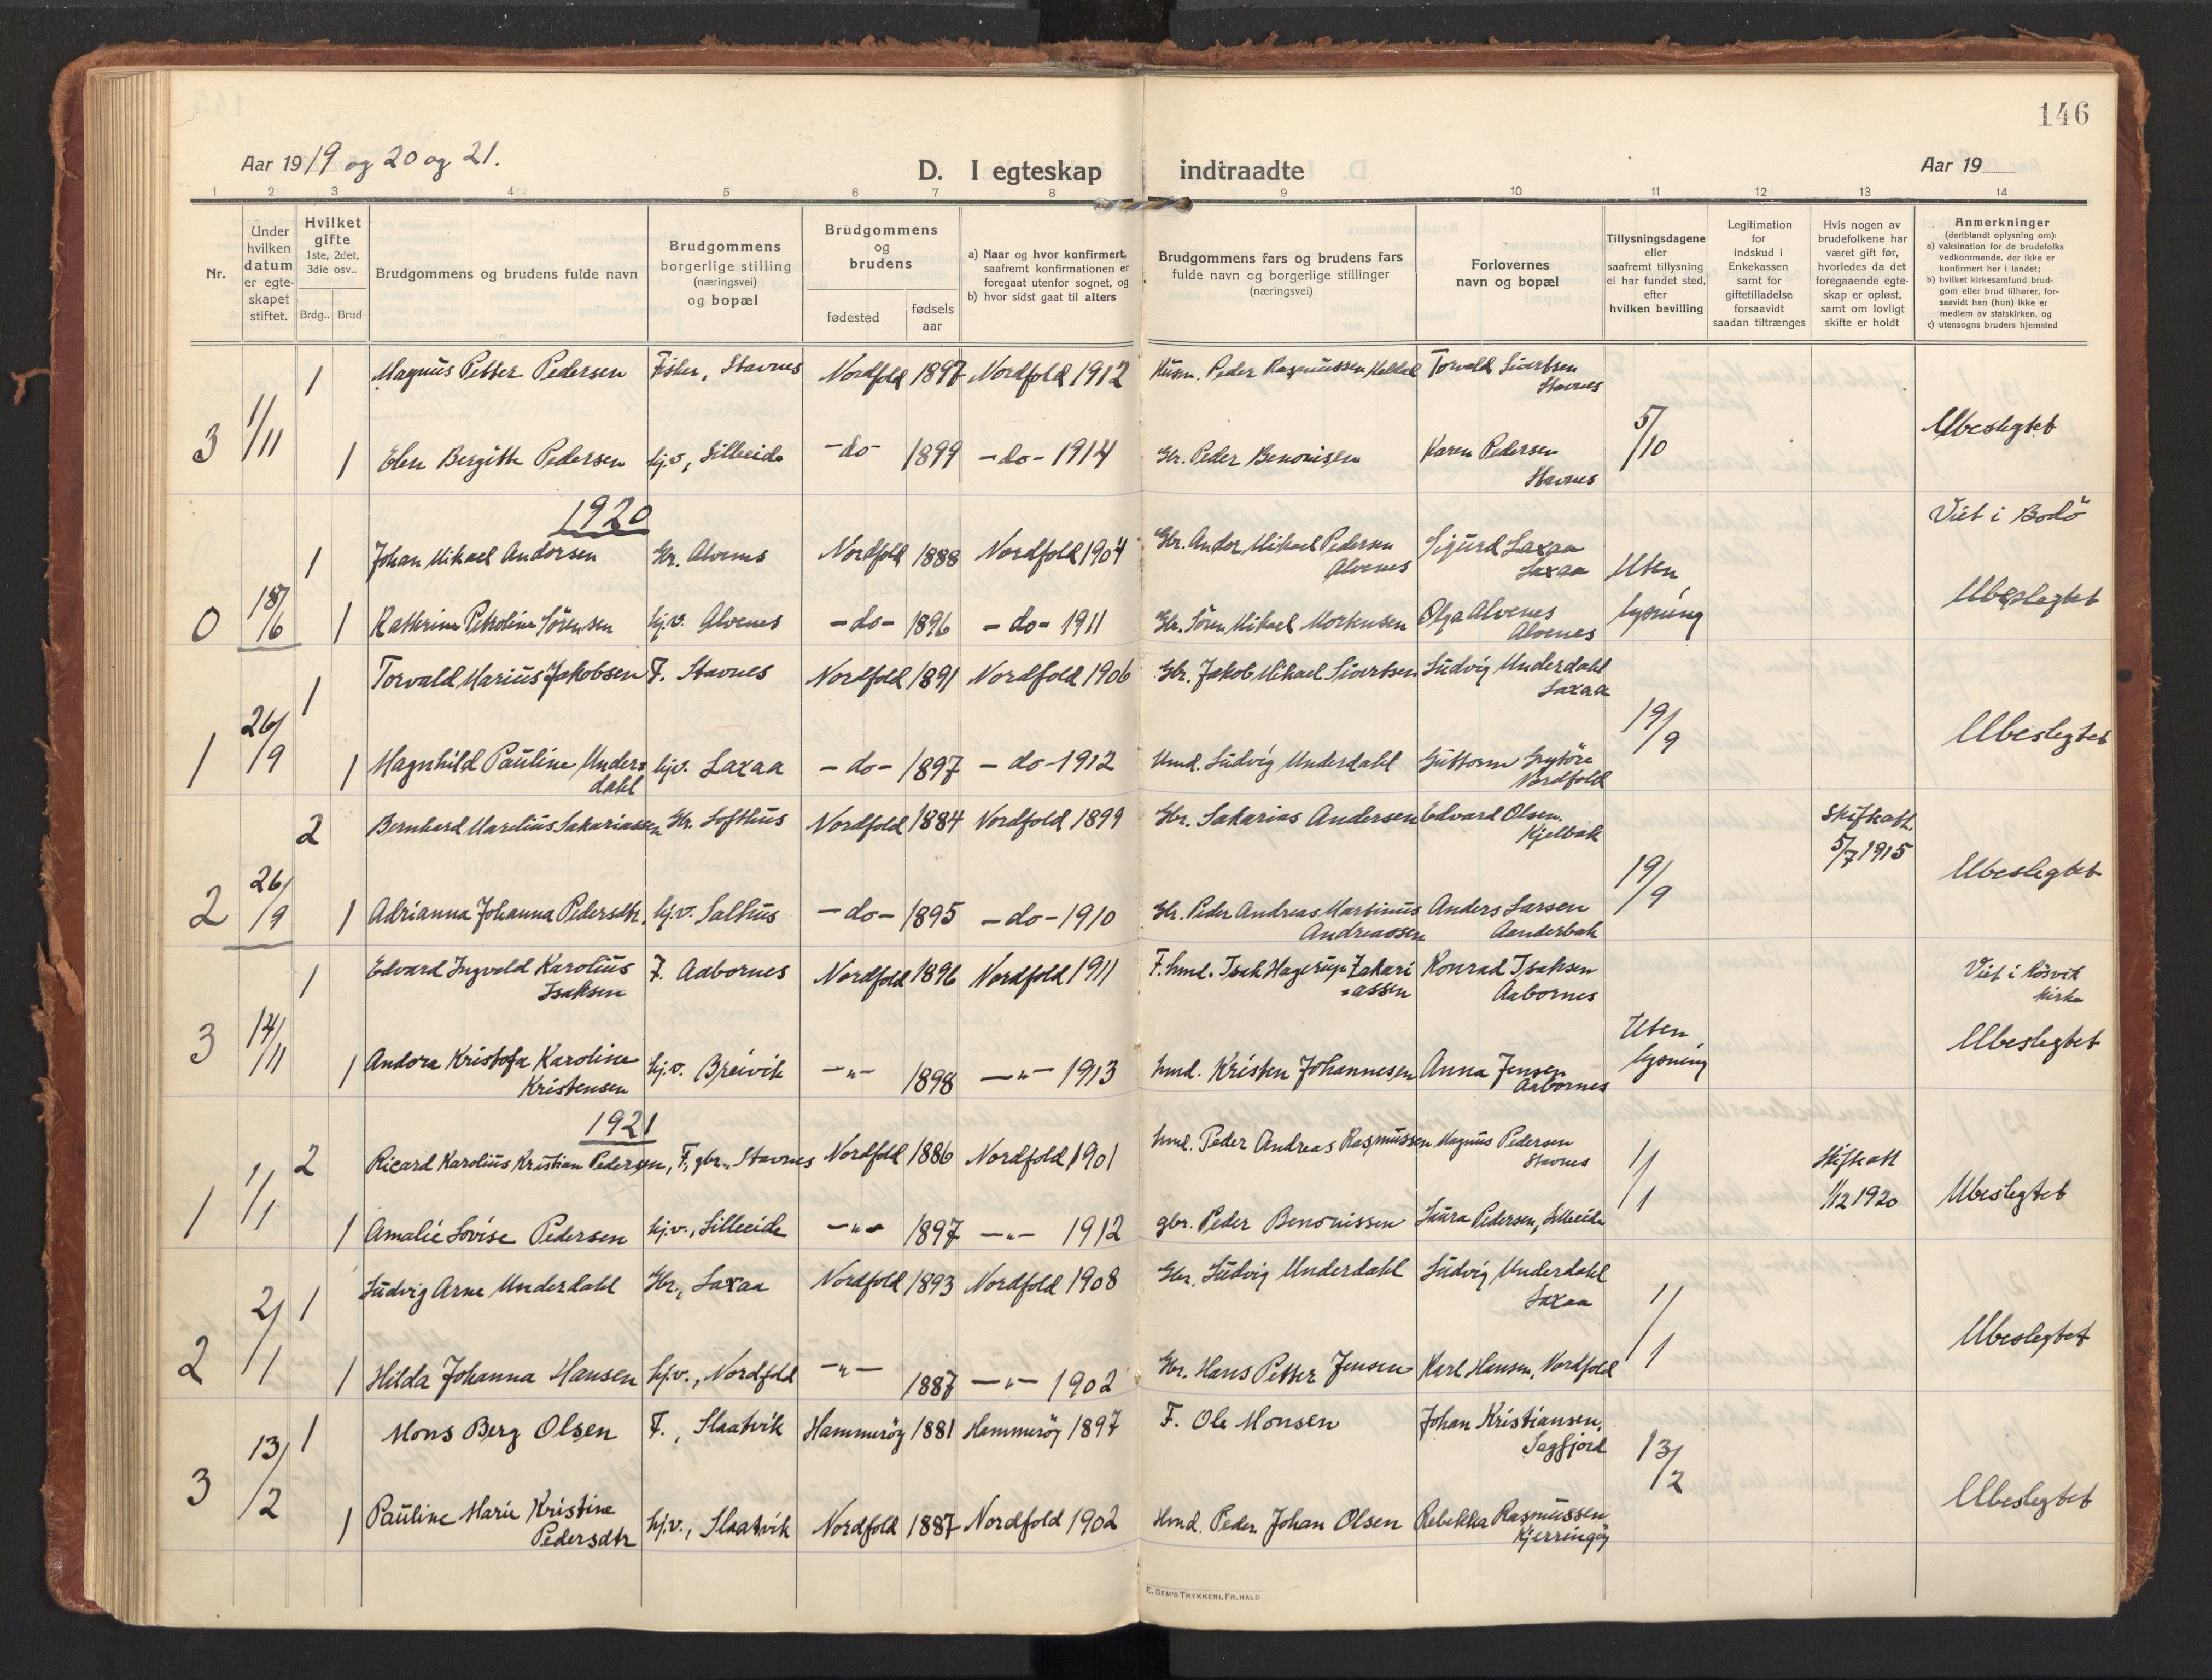 146
Aar 1919 og 20 og 21.
D. I egteskap indtraadte
Aar 19
1 2 3 4 5 6 7 8 9 10 11 12 13 14
Nr.
Under hvilken datum er egte-skapet stiftet.
Hvilket gifte 1ste, 2det, 3die osv..
Brdg.. Brud
Brudgommens og brudens fulde navn
Brudgommens borgerlige stilling (næringsvei) og bopæl
Brudgommens og brudens
fødested
fødsels aar
a) Naar og hvor konfirmert, saafremt konfirmationen er foregaat utenfor sognet, og
b) hvor sidst gaat til alters
Brudgommens fars og brudens fars fulde navn og borgerlige stillinger (næringsvei)
Forlovernes navn og bopæl
Tillysningsdagene eller saafremt tillysning ei har fundet sted, efter hvilken bevilling
Legitimation for indskud i Enkekassen samt for giftetilladelse forsaavidt saadan tiltrænges
Hvis nogen av brudefolkene har været gift før, hvorledes da det foregaaende egte-skap er opløst, samt om lovligt skifte er holdt
Anmerkninger (deriblandt oplysning om):
a) vaksination for de brudefolks vedkommende, der ikke er konfirmert her i landet;
b) hvilket kirkesamfund brud-gom eller brud tilhører, for-saavidt han (hun) ikke er medlem av statskirken, og
c) utensogns bruders hjemsted
1 Magnus Petter Pedersen Fisker, Stavnes Nordfold 1897 Nordfold 1912 Husm. Peder Rasmussen Torvald Sivertsen
Stavnes
3 1/11 5/10 Ubeslegtet
1 Elen Bergitte Pedersen hj.v., Lilleeide -do- 1899 -do- 1914 Gbr. Peder Benonisen Karen Pedersen
Stavnes
1920
Viet i Bodö
1 Johan Mikael Andorsen Gbr. Alvenes Nordfold 1888 Nordfold 1904 Gbr. Andor Mikael Pedersen Sigurd Laxaa
Alvenes Laxaa
0 18/6 Uten lysning Ubeslegtet
1 Kathrine Petroline Sörensen hj.v. Alvenes -do- 1896 -do- 1911 Gbr. Sören Mikael Mortensen Olga Alvenes
Alvenes
1 Torvald Marius Jakobsen F. Stavnes Nordfold 1891 Nordfold 1906 Gbr. Jakob Mikael Sivertsen Ludvig Underdahl
Laxaa
1 26/9 19/9 Ubeslegtet
1 Magnhild Pauline Under=dahl hj.v. Laxaa -do- 1897 -do- 1912 Hmd. Ludvig Underdahl Guttorm Grytöre
Nordfold
2 Bernhard Marelius Sakariassen Gbr. Lofthus Nordfold 1884 Nordfold 1899 Gbr. Sakarias Andersen Edvard Olsen.
Kjelbak
Skifteatt. 5/7 1915
2 26/9 19/9 Ubeslegtet
1 Adrianna Johanna Pedersdtr. hj.v. Salhus -do- 1895 -do- 1910 Gbr. Peder Andreas Martinus Anders Larsen
Andreassen Aanderbak
1 Edvard Ingvald Karolius F. Aabornes Nordfold 1896 Nordfold 1911 F. hmd. Isak Hagerup Zakari Konrad Isaksen
Isaksen =assen Aabornes
Viet i Rösvik kirke
3 14/11 Uten lysning Ubeslegtet
1 Andora Kristofa Karoline hj.v. Breivik -"- 1898 -"- 1913 hmd. Kristen Johannesen Anna Jensen
Kristensen Aabornes
1921
2 Ricard Karolius Kristian Pedersen, F., gbr., Stavnes Nordfold 1886 Nordfold 1901 hmd. Peder Andreas Rasmussen Magnus Pedersen
Stavnes
1 1/1 1/1 Skifteatt 1/12 1920 Ubeslegtet
1 Amalie Lovise Pedersen hj.v., Lilleeide -"- 1897 -"- 1912 gbr. Peder Benonissen Laura Pedersen, Lilleeide
1 Ludvig Arne Underdahl Gbr., Laxaa Nordfold 1893 Nordfold 1908 Gbr. Ludvig Underdahl Ludvig Underdahl
Laxaa
2 2/1 1/1 Ubeslegtet
1 Hilda Johanna Hansen hj.v., Nordfold -"- 1887 -"- 1902 Gbr. Hans Petter Jensen Karl Hansen, Nordfold
1 Mons Berg Olsen F., Slaatvik Hammeröy 1881 Hammeröy 1897 F. Ole Monsen Johan Kristiansen,
Sagfjord
3 13/2 13/2 Ubeslegtet
1 Pauline Marie Kristine hj.v., Slaatvik Nordfold 1887 Nordfold 1902 Hmd. Peder Johan Olsen Rebekka Rasmussen
Pedersdtr Kjerringöy
E. SEM'S TRYKKERI, FR.HALD